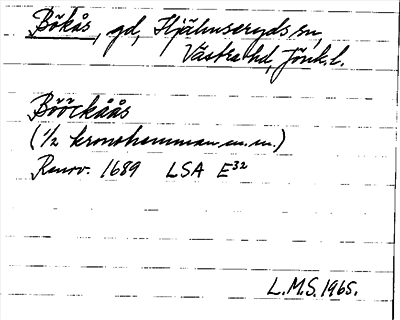 Bökås, gd, Hjälmseryds sn,
Västra hd, Jönk.l.
Bööckåås
(1/2 kronohemman m.m.)
Renov. 1689 LSA E32
L.M.S. 1965.